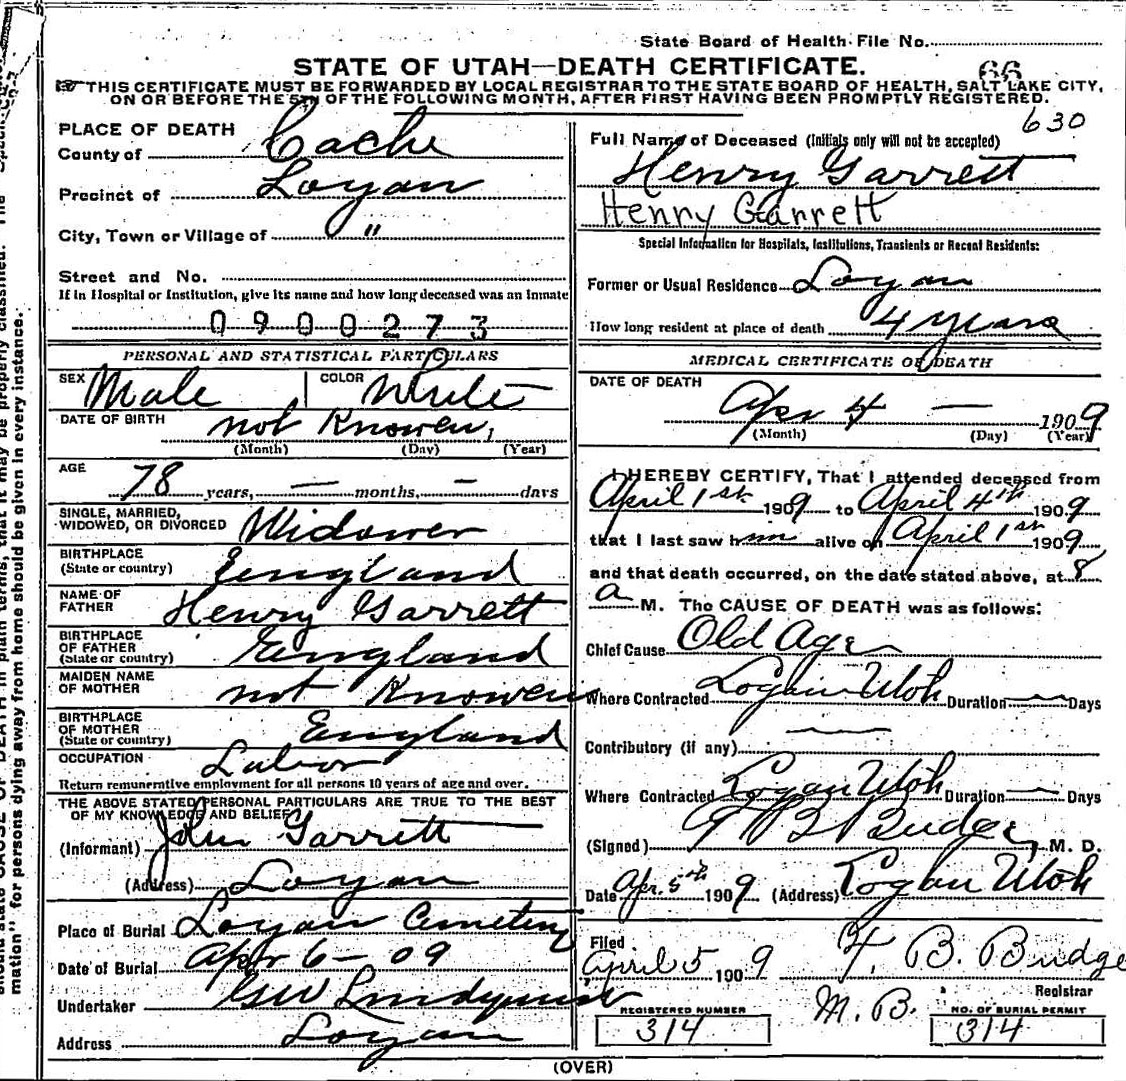 State Board of Health File No.
66
STATE OF UTAH—DEATH CERTIFICATE.
THIS CERTIFICATE MUST BE FORWARDED BY LOCAL REGISTRAR TO THE STATE BOARD OF HEALTH, SALT LAKE CITY,
ON OR BEFORE THE 5TH OF THE FOLLOWING MONTH, AFTER FIRST HAVING BEEN PROMPTLY REGISTERED.
630
PLACE OF DEATH
County of Cache
Precinct of Logan
City, Town or Village of "
Street and No.
If in Hospital or Institution, give its name and how long deceased was an inmate
0900273
PERSONAL AND STATISTICAL PARTICULARS
SEX Male COLOR White
DATE OF BIRTH not Knowen,
(Month) (Day) (Year)
AGE
78 years, — months, — days
SINGLE, MARRIED,
WIDOWED, OR DIVORCED Widower
BIRTHPLACE
(State or country) England
NAME OF
FATHER Henry Garrett
BIRTHPLACE
OF FATHER
(State or country) England
MAIDEN NAME
OF MOTHER not Knowen
BIRTHPLACE
OF MOTHER
(State or country) England
OCCUPATION Labor
Return remunerative employment for all persons 10 years of age and over.
THE ABOVE STATED PERSONAL PARTICULARS ARE TRUE TO THE BEST
OF MY KNOWLEDGE AND BELIEF
(Informant) John Garrett
(Address) Logan
Place of Burial Logan Cemetery
Date of Burial Apr 6 - 09
Undertaker GW Lindquist
Address Logan
Full Name of Deceased (Initials only will not be accepted)
Henry Garrett
Henry Garrett
Special Information for Hospitals, Institutions, Transients or Recent Residents:
Former or Usual Residence Logan
How long resident at place of death 4 years
MEDICAL CERTIFICATE OF DEATH
DATE OF DEATH
Apr 4 — 1909
(Month) (Day) (Year)
I HEREBY CERTIFY, That I attended deceased from
April 1st 1909 to April 4th 1909
that I last saw him alive on April 1st 1909
and that death occurred, on the date stated above, at 8
a M. The CAUSE OF DEATH was as follows:
Chief Cause Old Age
Where Contracted Logan Utah Duration — Days
Contributory (if any) —
Where Contracted Logan Utah Duration — Days
(Signed) T B Budge, M. D.
Date Apr. 5th 1909 (Address) Logan Utah
Filed
April 5 1909 T. B. Budge
Registrar
M. B.
REGISTERED NUMBER
314
NO. OF BURIAL PERMIT
314
(OVER)
should state CAUSE OF DEATH in plain terms, that it may be properly classified. The "Special Infor-
mation" for persons dying away from home should be given in every instance.